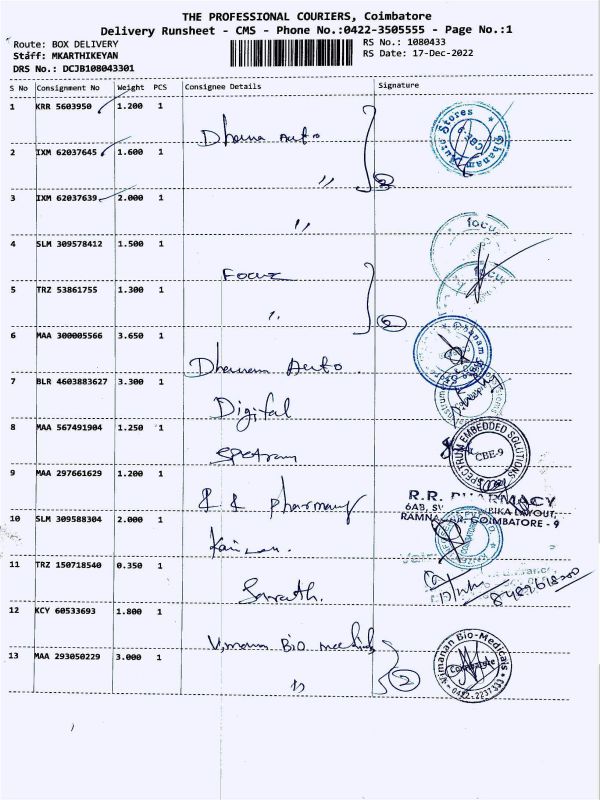 THE PROFESSIONAL COURIERS, Coimbatore
Delivery Runsheet - CMS - Phone No.:0422-3505555 - Page No.:1
Route: BOX DELIVERY
RS No.: 1080433
Staff: MKARTHIKEYAN
RS Date: 17-Dec-2022
DRS No.: DCJB108043301
S No Consignment No Weight PCS Consignee Details Signature
1 KRR 5603950 1.200 1
Dhanam Auto
Dhanam Auto Stores
2 IXM 62037645 1.600 1
"
3
3 IXM 62037639 2.000 1
"
4 SLM 309578412 1.500 1
Focus
focus
5 TRZ 53861755 1.300 1
"
2
focus
6 MAA 300005566 3.650 1
Dhanam Auto
Dhanam
7 BLR 4603883627 3.300 1
Digital
8 MAA 567491904 1.250 1
Spectrum
SPECTRUM EMBEDDED SOLUTIONS
CBE-9
9 MAA 297661629 1.200 1
R R pharmacy
R.R. PHARMACY
6AB, LAYOUT,
COIMBATORE - 9
10 SLM 309588304 2.000 1
11 TRZ 150718540 0.350 1
12 KCY 60533693 1.800 1
Vimanan Bio medicals
13 MAA 293050229 3.000 1
"
2
Vimanan Bio-Medicals
Coimbatore
0422-2237333